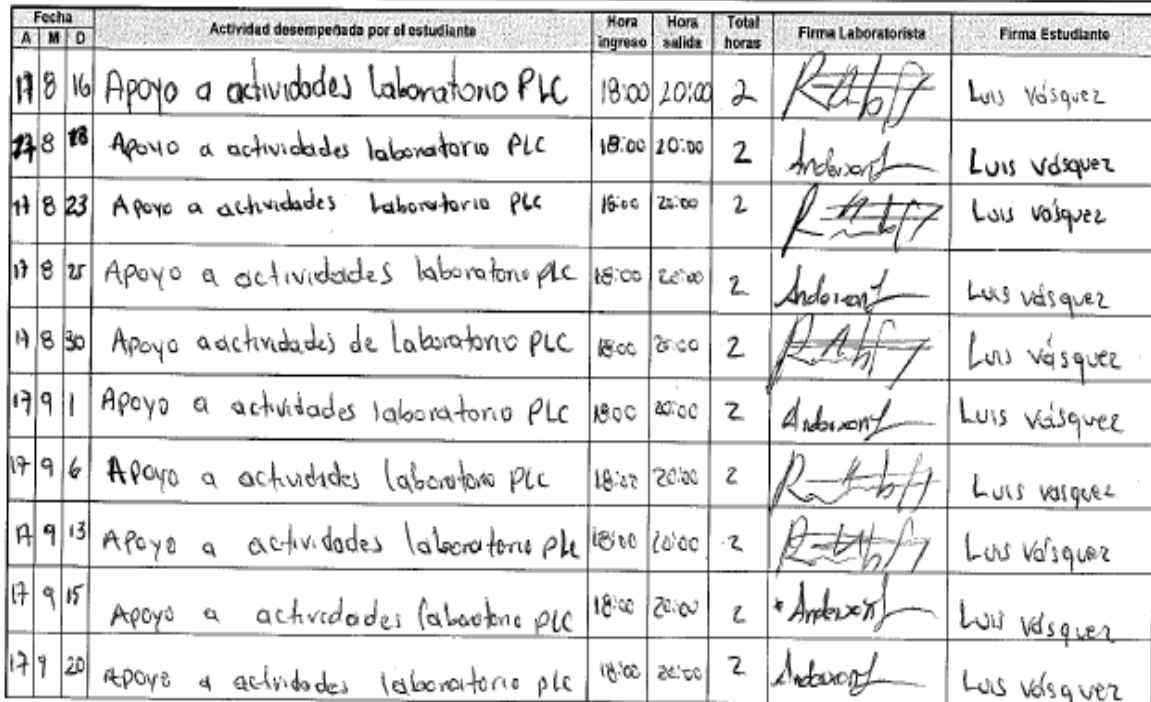 Fecha Actividad desempeñada por el estudiante Hora ingreso Hora salida Total horas Firma Laboratorista Firma Estudiante
A M D
17 8 16 Apoyo a actividades Laboratorio PLC 18:00 20:00 2 Luis Vásquez
17 8 18 Apoyo a actividades laboratorio PLC 18:00 20:00 2 Anderson Luis Vásquez
17 8 23 Apoyo a actividades Laboratorio PLC 18:00 20:00 2 Luis Vásquez
17 8 25 Apoyo a actividades laboratorio PLC 18:00 20:00 2 Anderson Luis Vásquez
17 8 30 Apoyo a actividades de Laboratorio PLC 18:00 20:00 2 Luis Vásquez
17 9 1 Apoyo a actividades laboratorio PLC 18:00 20:00 2 Anderson Luis Vásquez
17 9 6 Apoyo a actividades laboratorio PLC 18:00 20:00 2 Luis Vasquez
17 9 13 Apoyo a actividades laboratorio PLC 18:00 20:00 2 Luis Vásquez
17 9 15 Apoyo a actividades laboratorio PLC 18:00 20:00 2 Anderson Luis Vásquez
17 9 20 Apoyo a actividades laboratorio PLC 18:00 20:00 2 Anderson Luis Vásquez